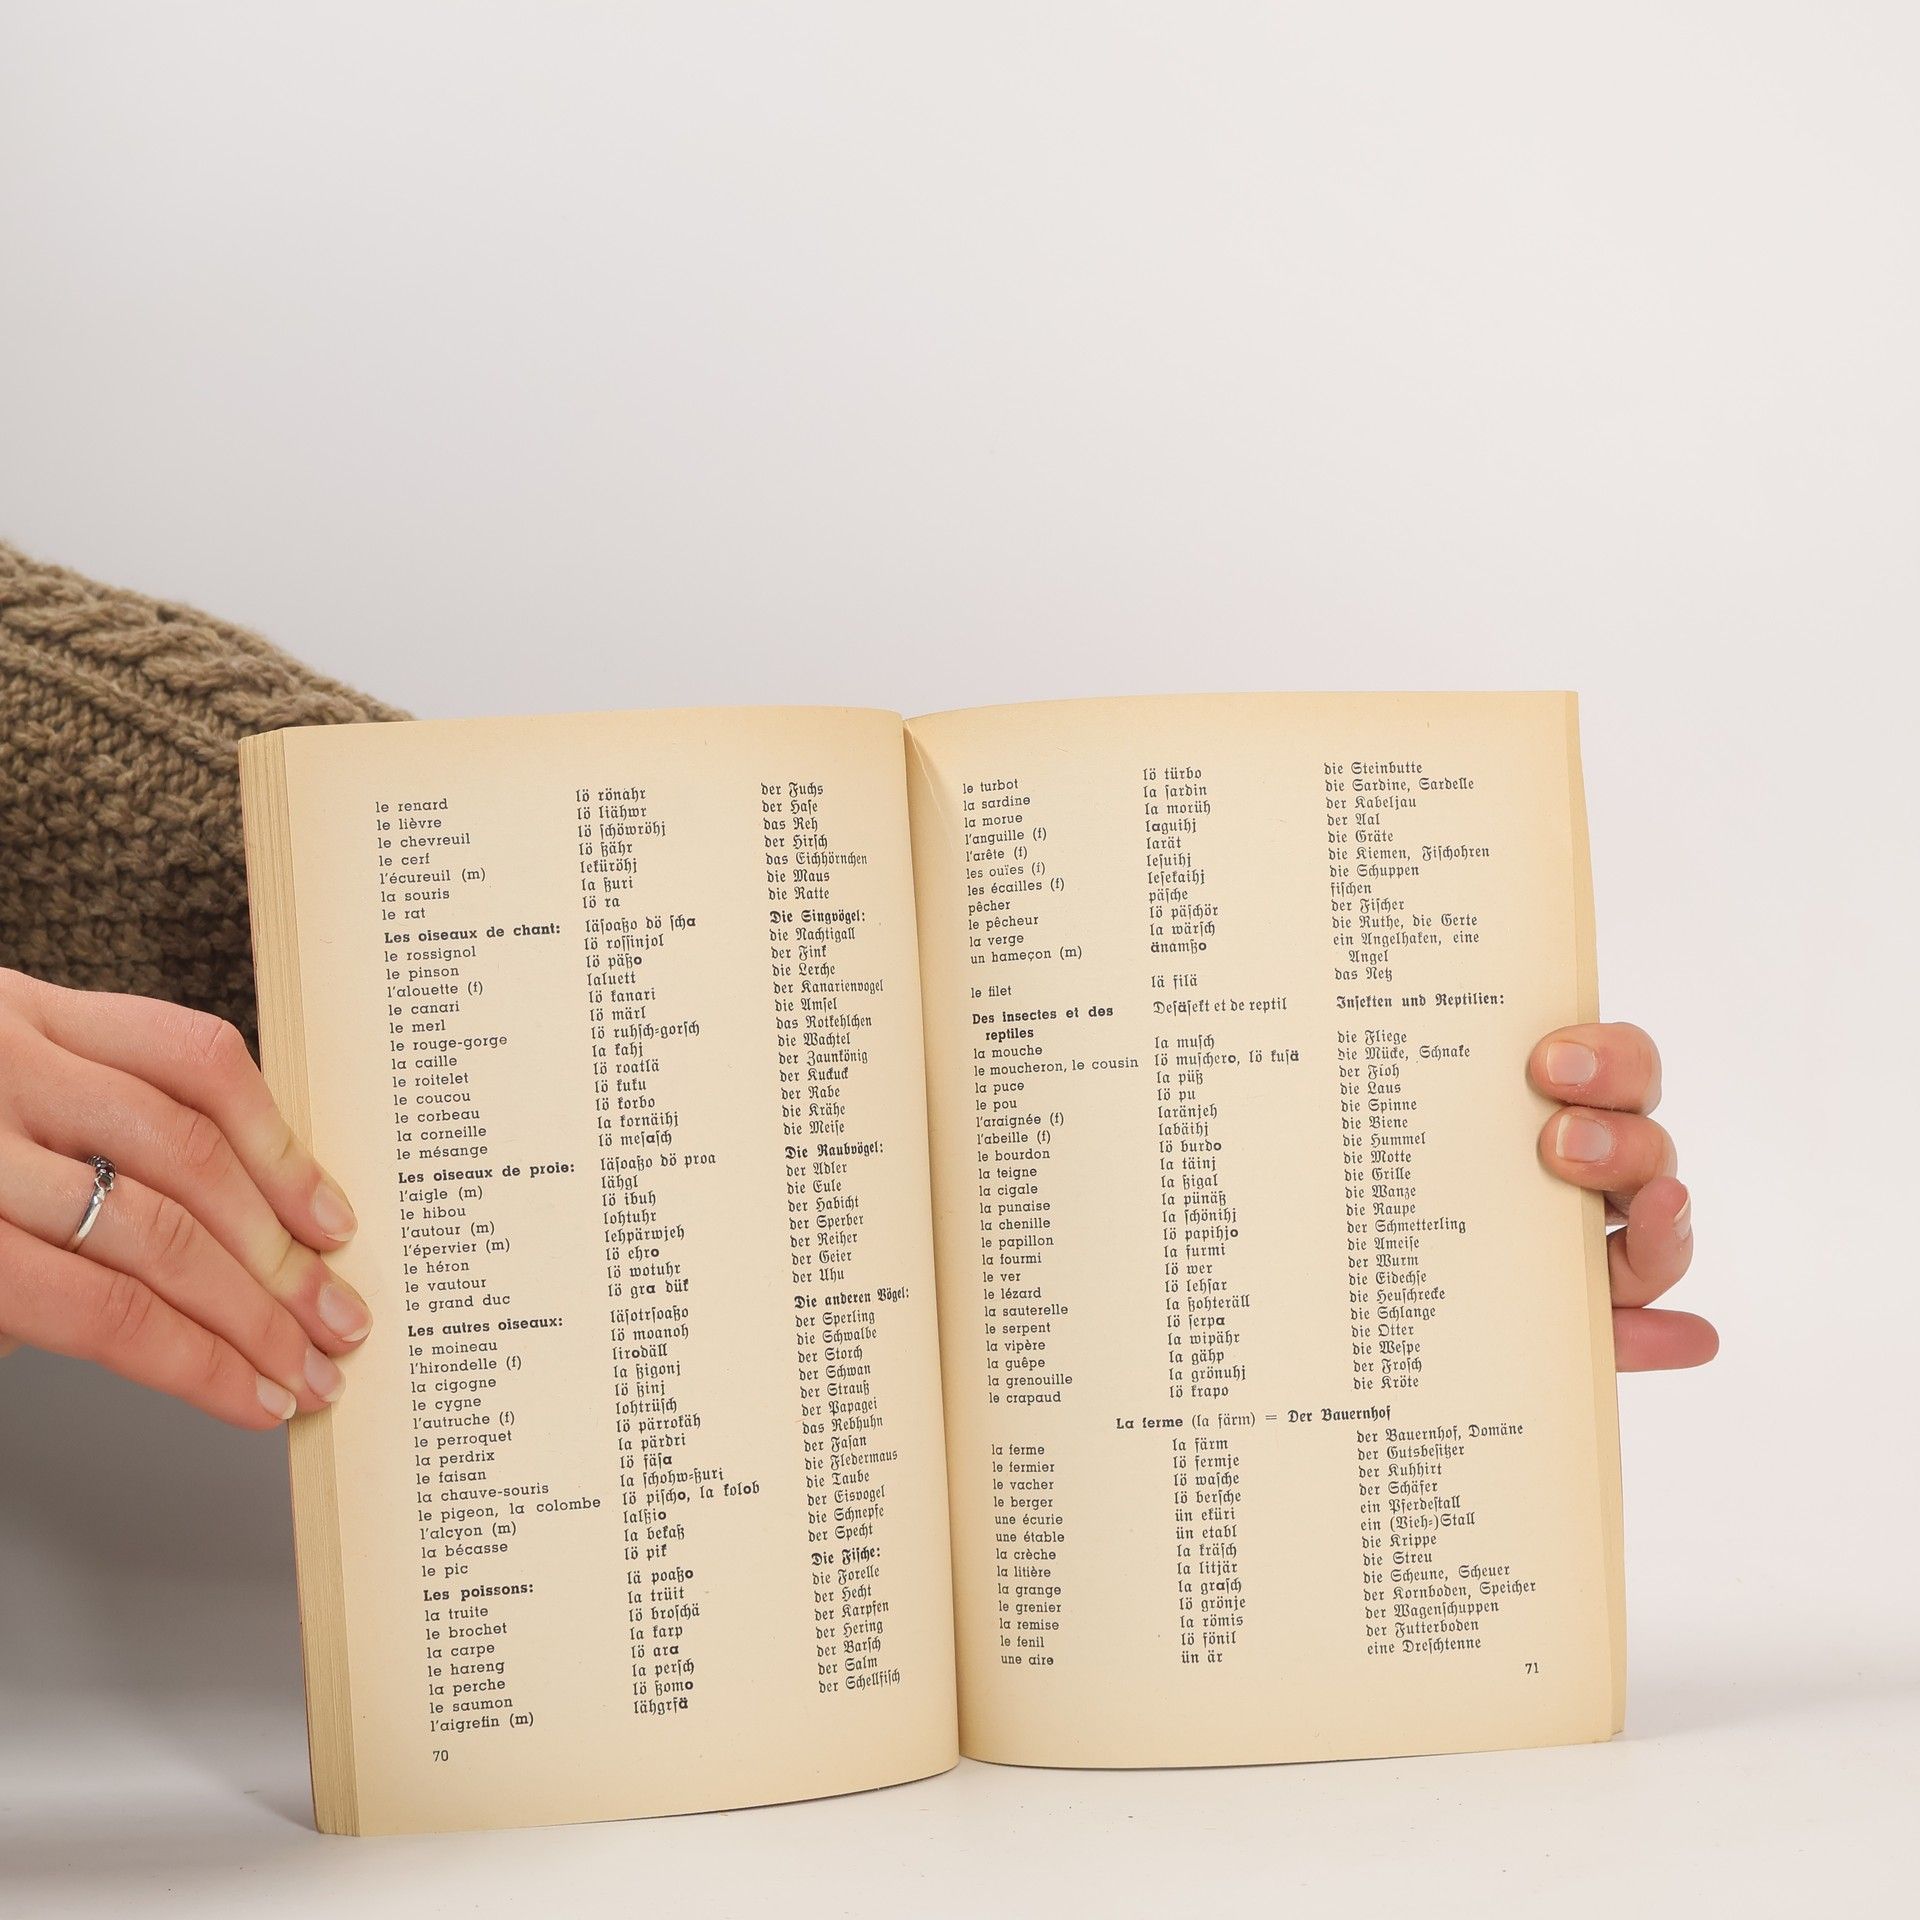 le renard lö rönahr der Fuchs
le lièvre lö liähwr der Hase
le chevreuil lö ſchöwröhj das Reh
le cerf lö ßähr der Hirſch
l'écureuil (m) leküröhj das Eichhörnchen
la souris la ßuri die Maus
le rat lö ra die Ratte
Les oiseaux de chant: läſoaßo dö ſcha Die Singvögel:
le rossignol lö roſſinjol die Nachtigall
le pinson lö päßo der Fink
l'alouette (f) laluett die Lerche
le canari lö kanari der Kanarienvogel
le merl lö märl die Amſel
le rouge-gorge lö ruhſch-gorſch das Rotkehlchen
la caille la kahj die Wachtel
le roitelet lö roatlä der Zaunkönig
le coucou lö kuku der Kuckuck
le corbeau lö korbo der Rabe
la corneille la kornäihj die Krähe
le mésange lö meſaſch die Meiſe
Les oiseaux de proie: läſoaßo dö proa Die Raubvögel:
l'aigle (m) lähgl der Adler
le hibou lö ibuh die Eule
l'autour (m) lohtuhr der Habicht
l'épervier (m) lehpärwjeh der Sperber
le héron lö ehro der Reiher
le vautour lö wotuhr der Geier
le grand duc lö gra dük der Uhu
Les autres oiseaux: läſotrſoaßo Die anderen Vögel:
le moineau lö moanoh der Sperling
l'hirondelle (f) lirodäll die Schwalbe
la cigogne la ßigonj der Storch
le cygne lö ßinj der Schwan
l'autruche (f) lohtrüſch der Strauß
le perroquet lö pärrokäh der Papagei
la perdrix la pärdri das Rebhuhn
le faisan lö fäſa der Faſan
la chauve-souris la ſchohw-ßuri die Fledermaus
le pigeon, la colombe lö piſcho, la kolob die Taube
l'alcyon (m) lalßio der Eisvogel
la bécasse la bekaß die Schnepfe
le pic lö pik der Specht
Les poissons: lä poaßo Die Fiſche:
la truite la trüit die Forelle
le brochet lö broſchä der Hecht
la carpe la karp der Karpfen
le hareng lö ara der Hering
la perche la perſch der Barſch
le saumon lö ßomo der Salm
l'aigrefin (m) lähgrfä der Schellfiſch
70
le turbot lö türbo die Steinbutte
la sardine la ſardin die Sardine, Sardelle
la morue la morüh der Kabeljau
l'anguille (f) laguihj der Aal
l'arête (f) larät die Gräte
les ouïes (f) leſuihj die Kiemen, Fiſchohren
les écailles (f) leſekaihj die Schuppen
pêcher päſche fiſchen
le pêcheur lö päſchör der Fiſcher
la verge la wärſch die Ruthe, die Gerte
un hameçon (m) änamßo ein Angelhaken, eine
Angel
le filet lä filä das Netz
Des insectes et des Deſäſekt et de reptil Inſekten und Reptilien:
reptiles
la mouche la muſch die Fliege
le moucheron, le cousin lö muſchero, lö kuſä die Mücke, Schnake
la puce la püß der Floh
le pou lö pu die Laus
l'araignée (f) laränjeh die Spinne
l'abeille (f) labäihj die Biene
le bourdon lö burdo die Hummel
la teigne la täinj die Motte
la cigale la ßigal die Grille
la punaise la pünäß die Wanze
la chenille la ſchönihj die Raupe
le papillon lö papihjo der Schmetterling
la fourmi la furmi die Ameiſe
le ver lö wer der Wurm
le lézard lö lehſar die Eidechſe
la sauterelle la ßohteräll die Heuſchrecke
le serpent lö ſerpa die Schlange
la vipère la wipähr die Otter
la guêpe la gähp die Weſpe
la grenouille la grönuhj der Froſch
le crapaud lö krapo die Kröte
La ferme (la färm) = Der Bauernhof
la ferme la färm der Bauernhof, Domäne
le fermier lö fermje der Gutsbeſitzer
le vacher lö waſche der Kuhhirt
le berger lö berſche der Schäfer
une écurie ün eküri ein Pferdeſtall
une étable ün etabl ein (Vieh-)Stall
la crèche la kräſch die Krippe
la litière la litjär die Streu
la grange la graſch die Scheune, Scheuer
le grenier lö grönje der Kornboden, Speicher
la remise la römis der Wagenſchuppen
le fenil lö fönil der Futterboden
une aire ün är eine Dreſchtenne
71